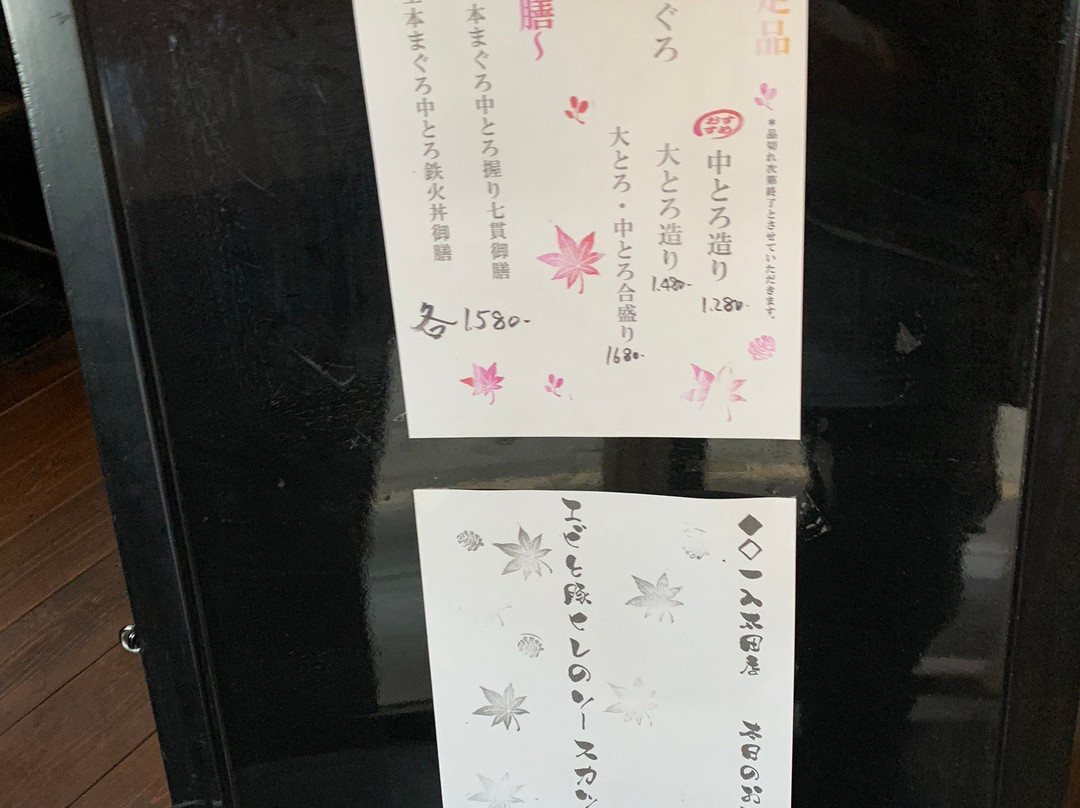 定品
*品切れ次第終了とさせていただきます。
おすすめ
中とろ造り
1.280-
ぐろ
大とろ造り
1.480-
大とろ・中とろ合盛り
1680-
膳～
本まぐろ中とろ握り七貫御膳
本まぐろ中とろ鉄火丼御膳
各1.580-
◆◇一入本田店 本日のお
エビと豚ヒレのソースカツ